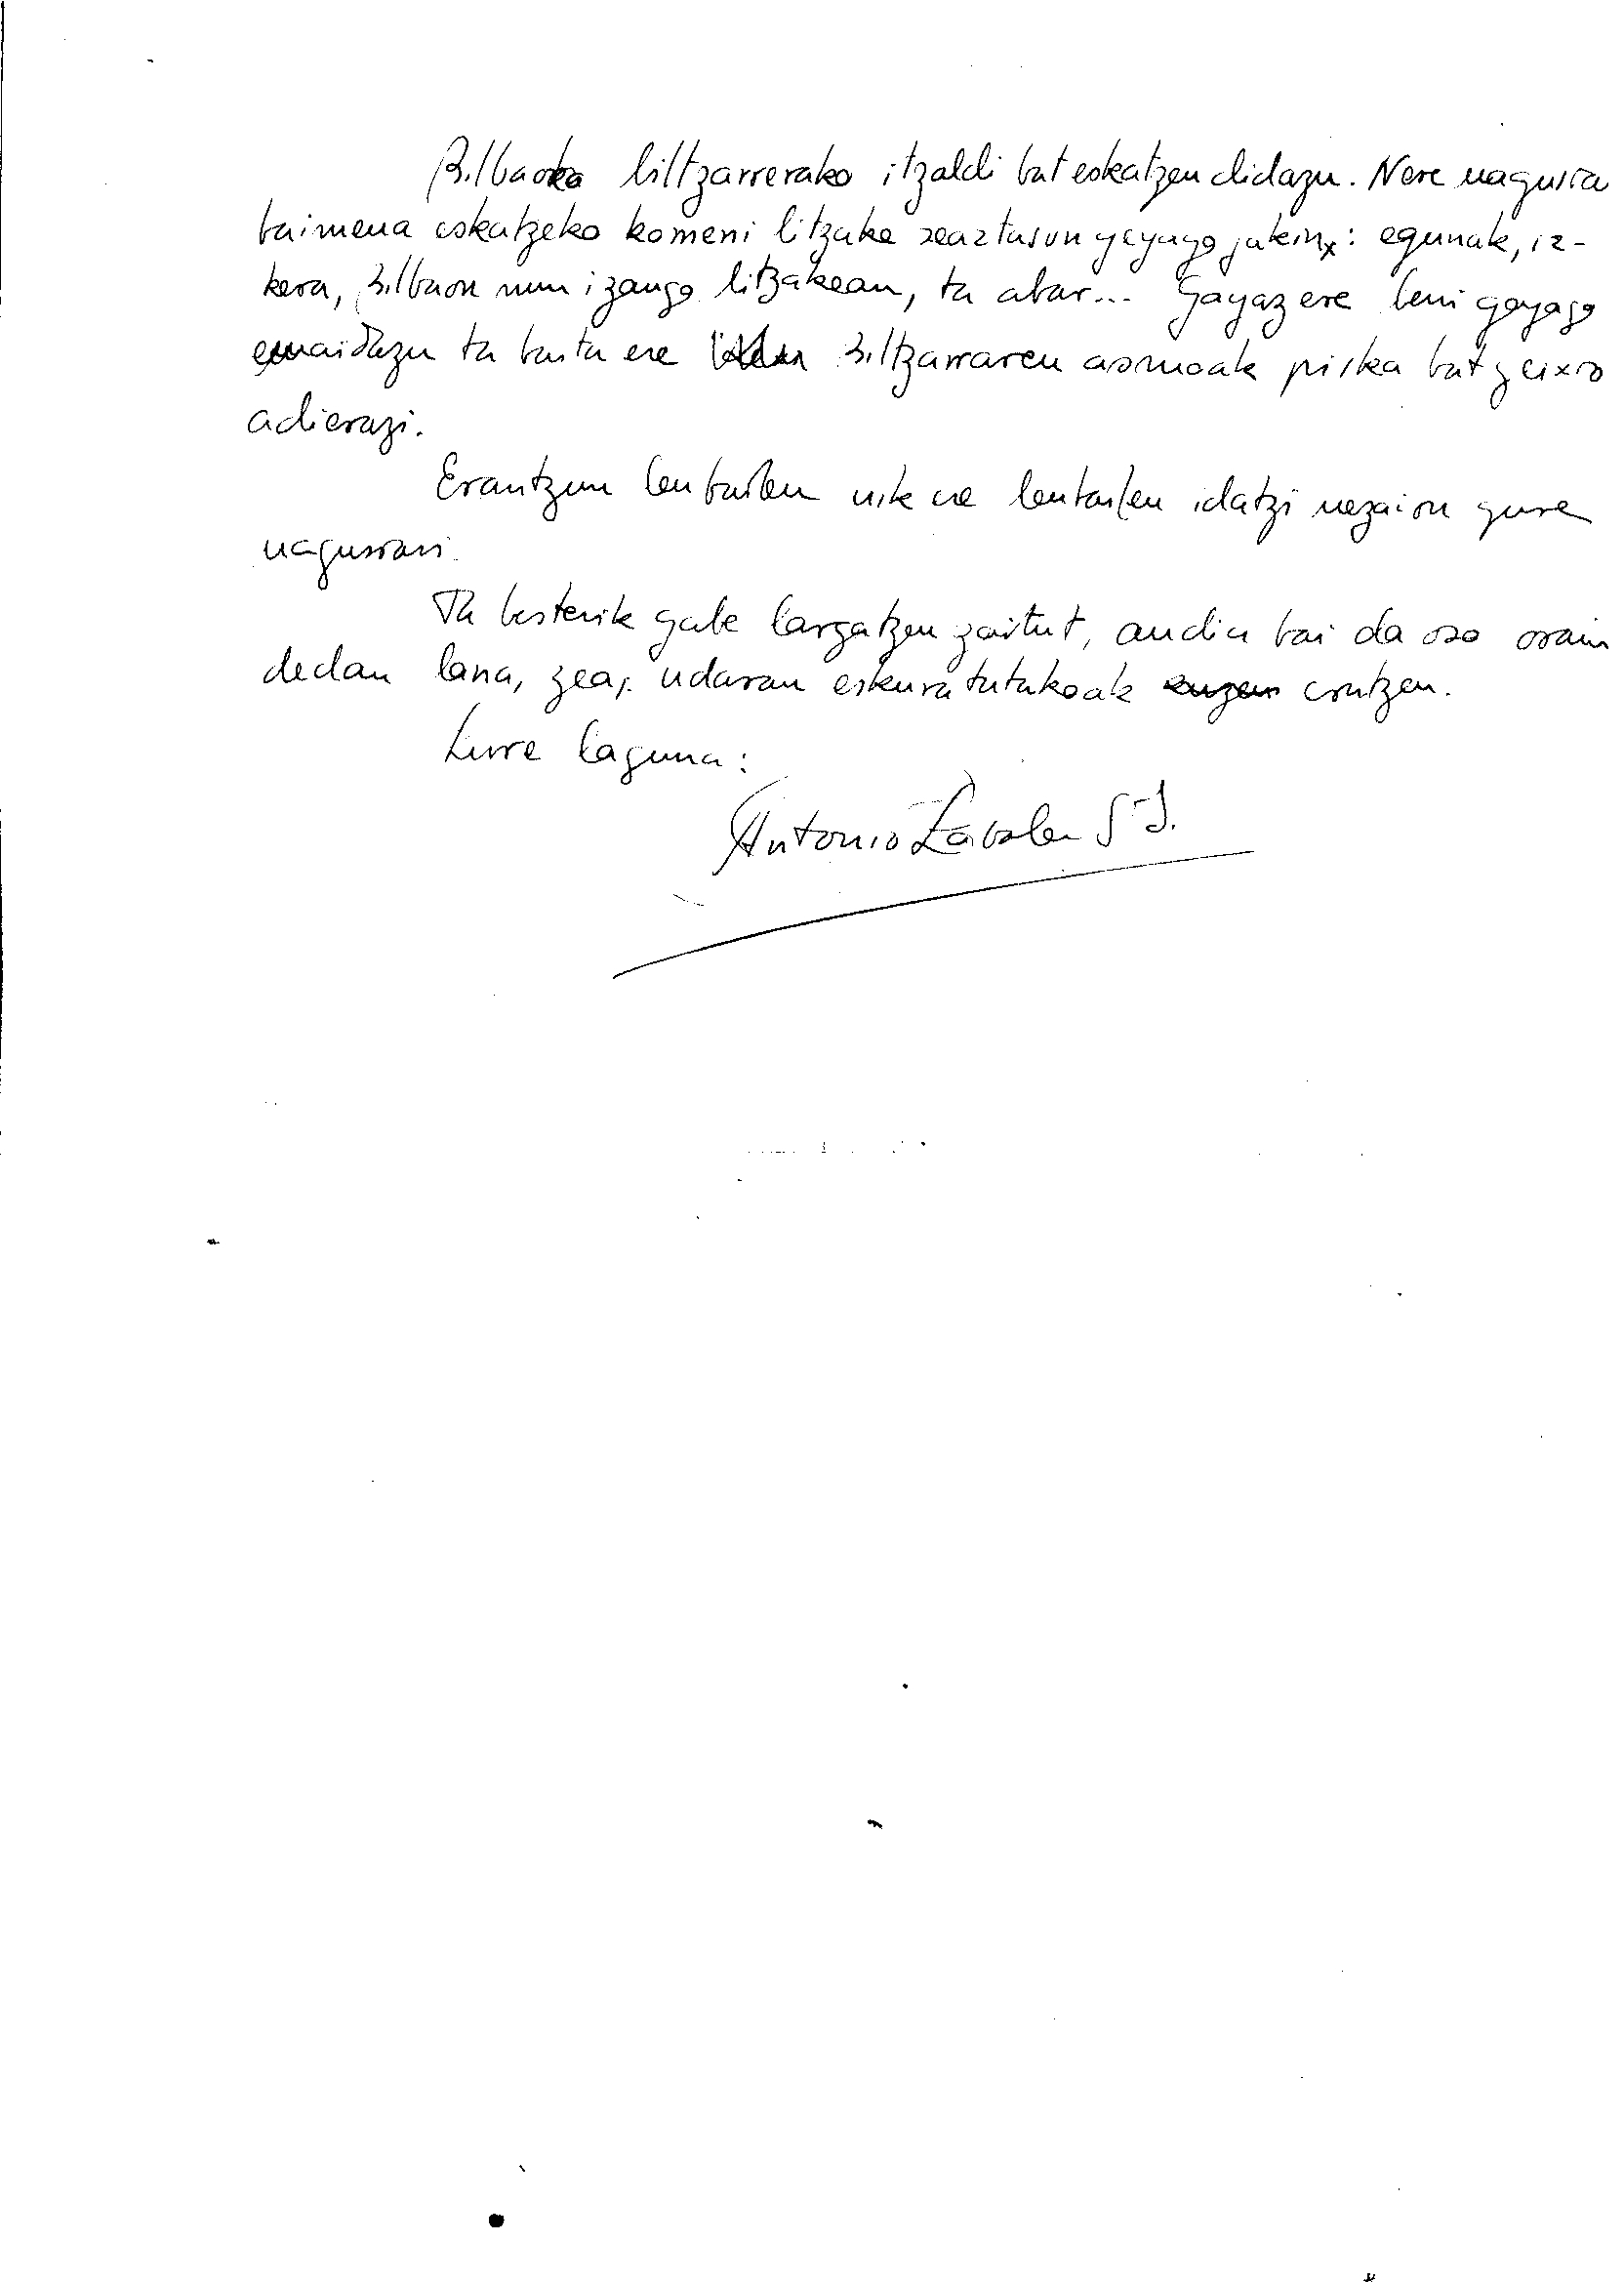 Bilbaoko biltzarrerako itzaldi bat eskatzen didazu. Nere nagusia
baimena eskatzeko komeni litzake xeaztasun geyago jakin: egunak, iz-
kera, Bilbaon nun izango litzakean, ta abar... Gayaz ere berri geyago
emaidazu ta baita ere Biltzarraren asmoak piska bat geixo
adierazi.
Erantzun lenbailen nik ere lenbailen idatzi nezaion gure
nagusiari.
Ta besterik gabe largatzen zaitut, audia bai da oso orain
dedan lana, zea, udaran eskuratutakoak eratzen.
Zurre laguna:
Antonio Zabala S J.